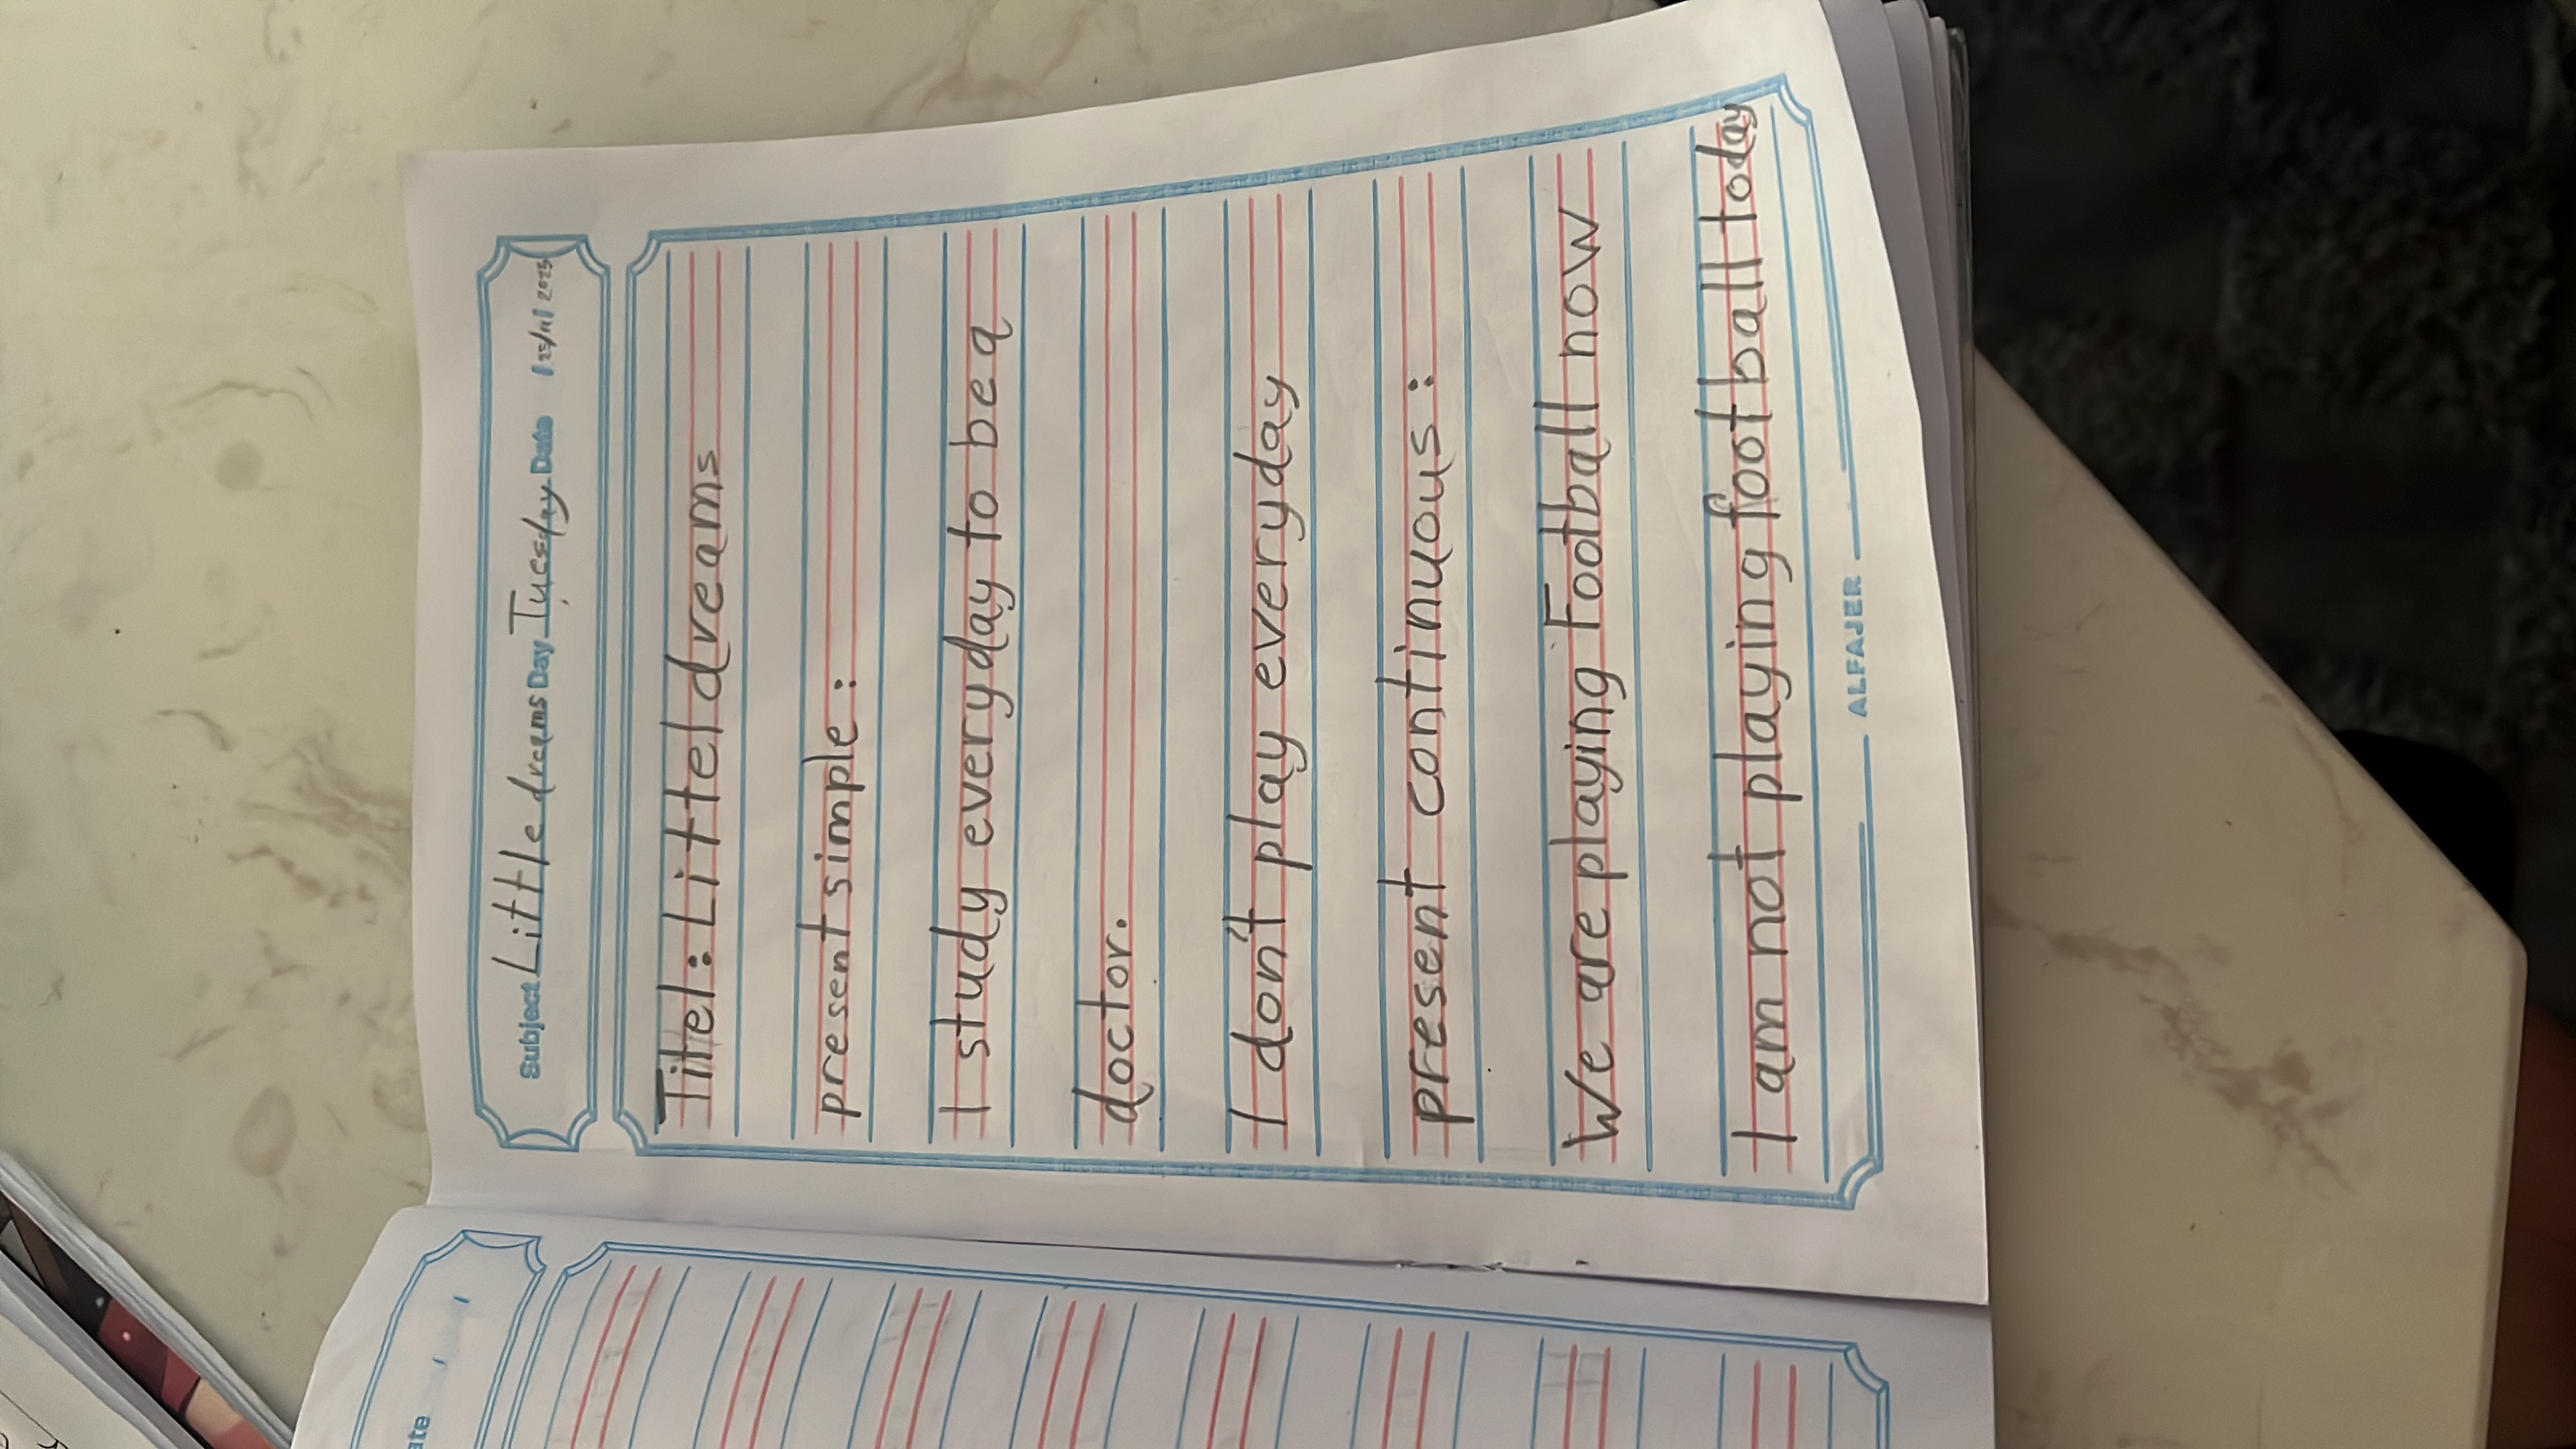 Subject Little dreams Day Tuesday Date / 25/11/ 2025
Titel : Littel dreams
present simple :
I study everyday to be a
doctor.
I don't play everyday
present continuous :
We are playing Football now
I am not playing football today
ALFAJER
ate